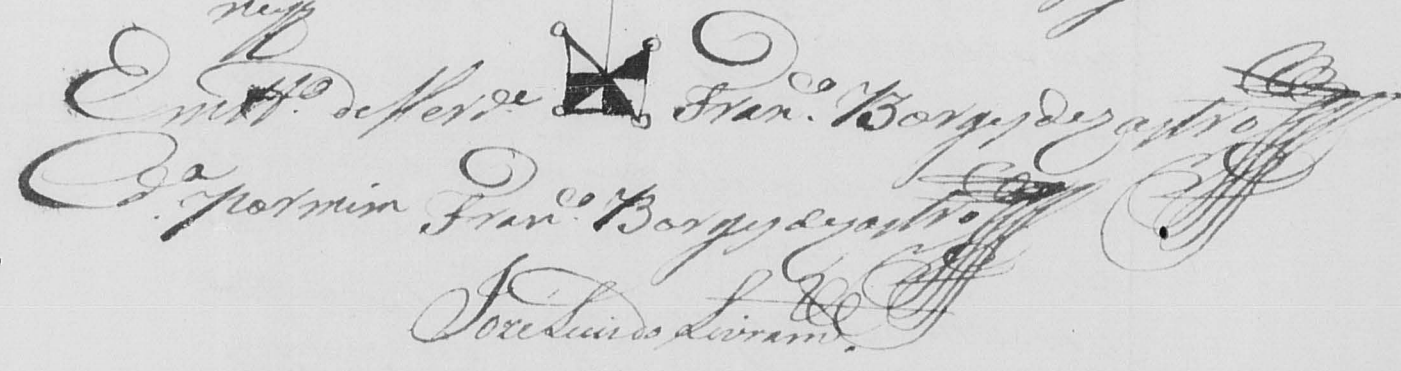 Em tt.º de Verd.e Fran.co Borges de Castro
C.da por mim Fran.co Borges de Castro
Joze Luis do Livram.